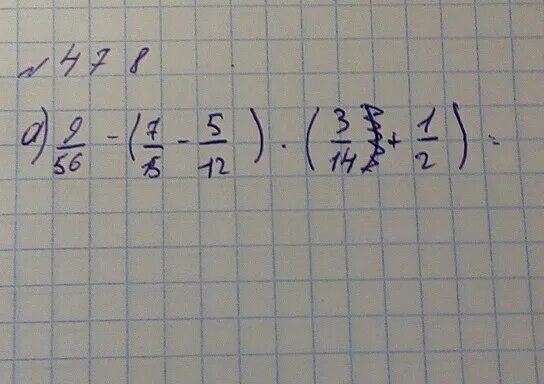 № 478
а) 9/56 - (7/15 - 5/12) · (3/14 + 1/2) =